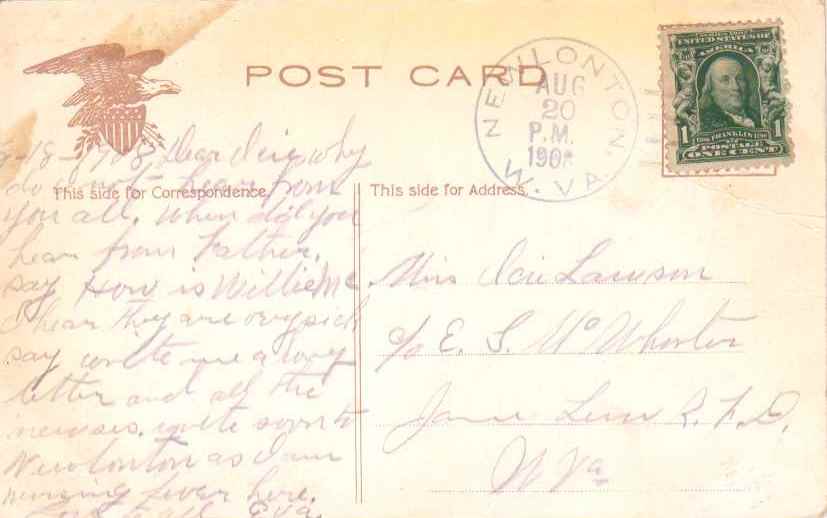 POST CARD
NEWLONTON,
W. VA.
AUG
20
P.M.
1908
UNITED STATES OF
AMERICA
1 FRANKLIN 1
POSTAGE
ONE CENT
This side for Correspondence.
This side for Address.
8-18-1908 Dear Icie why
do I not hear from
you all. When did you
hear from Father.
say How is Willie Mc
I hear they are very sick
say write me a long
letter and all the
newses. write soon to
Newlonton as I am
nursing fever here.
Love to all Eva.
Miss Icie Lawson
c/o E. S. McWhorter
Jane Lew R. F. D.
W Va